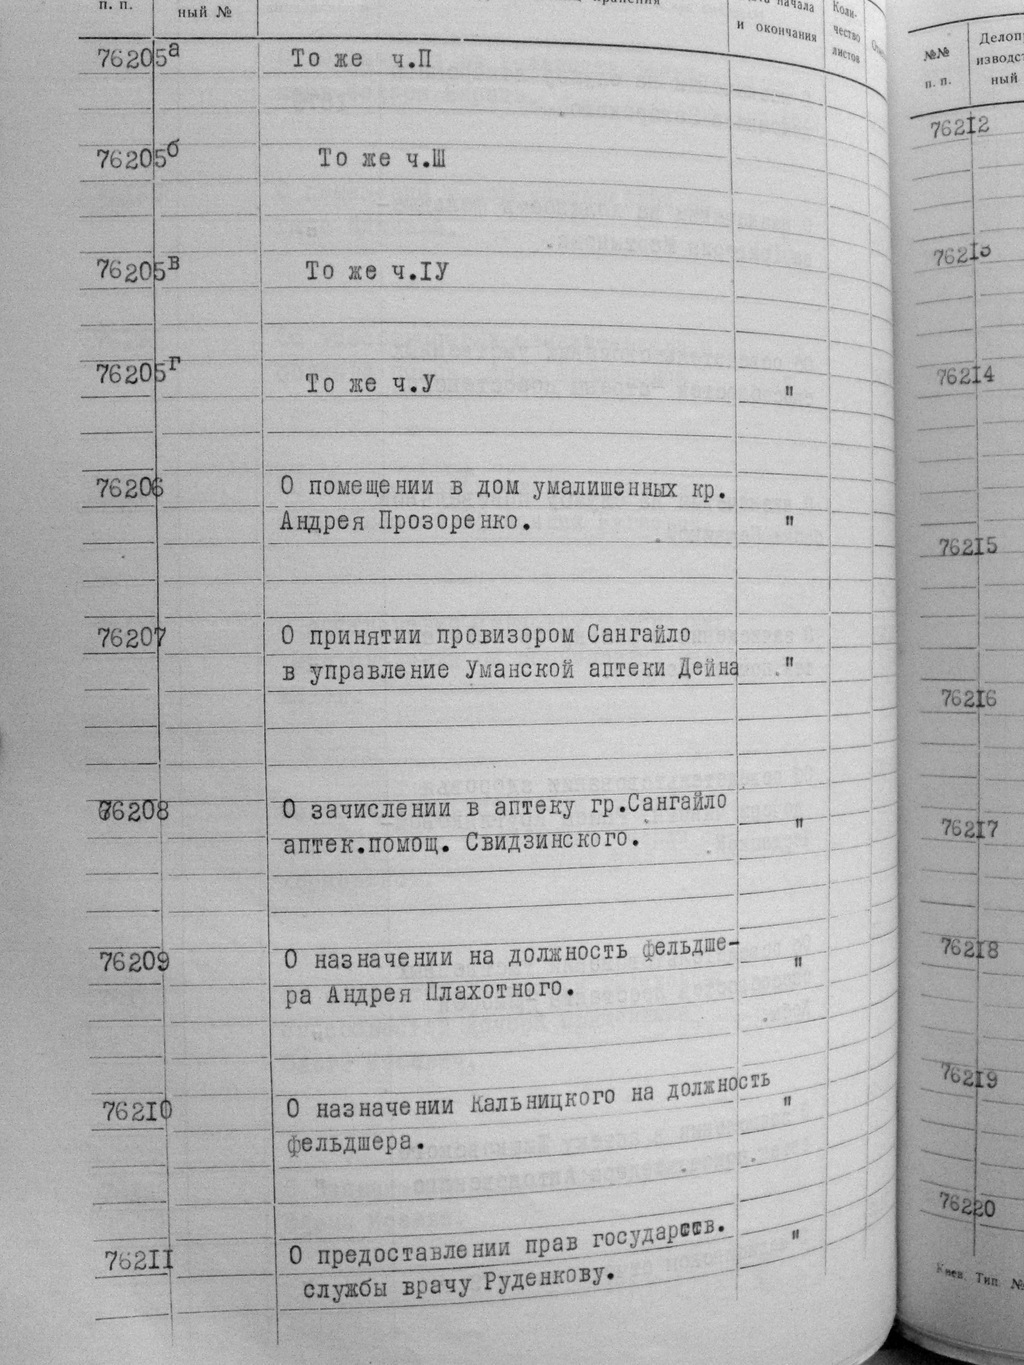 п. п.
ный №
начала
и окончания
Коли-
чество
листов
76205а То же ч.П
76205б То же ч.Ш
76205в То же ч.IУ
76205г То же ч.У "
76206 О помещении в дом умалишенных кр.
Андрея Прозоренко. "
76207 О принятии провизором Сангайло
в управление Уманской аптеки Дейна "
76208 О зачислении в аптеку гр.Сангайло
аптек.помощ. Свидзинского. "
76209 О назначении на должность фельдше-
ра Андрея Плахотного. "
76210 О назначении Кальницкого на должность
фельдшера. "
76211 О предоставлении прав государств.
службы врачу Руденкову. "
№№
п. п.
ный
76212
76213
76214
76215
76216
76217
76218
76219
76220
Киев. Тип. №